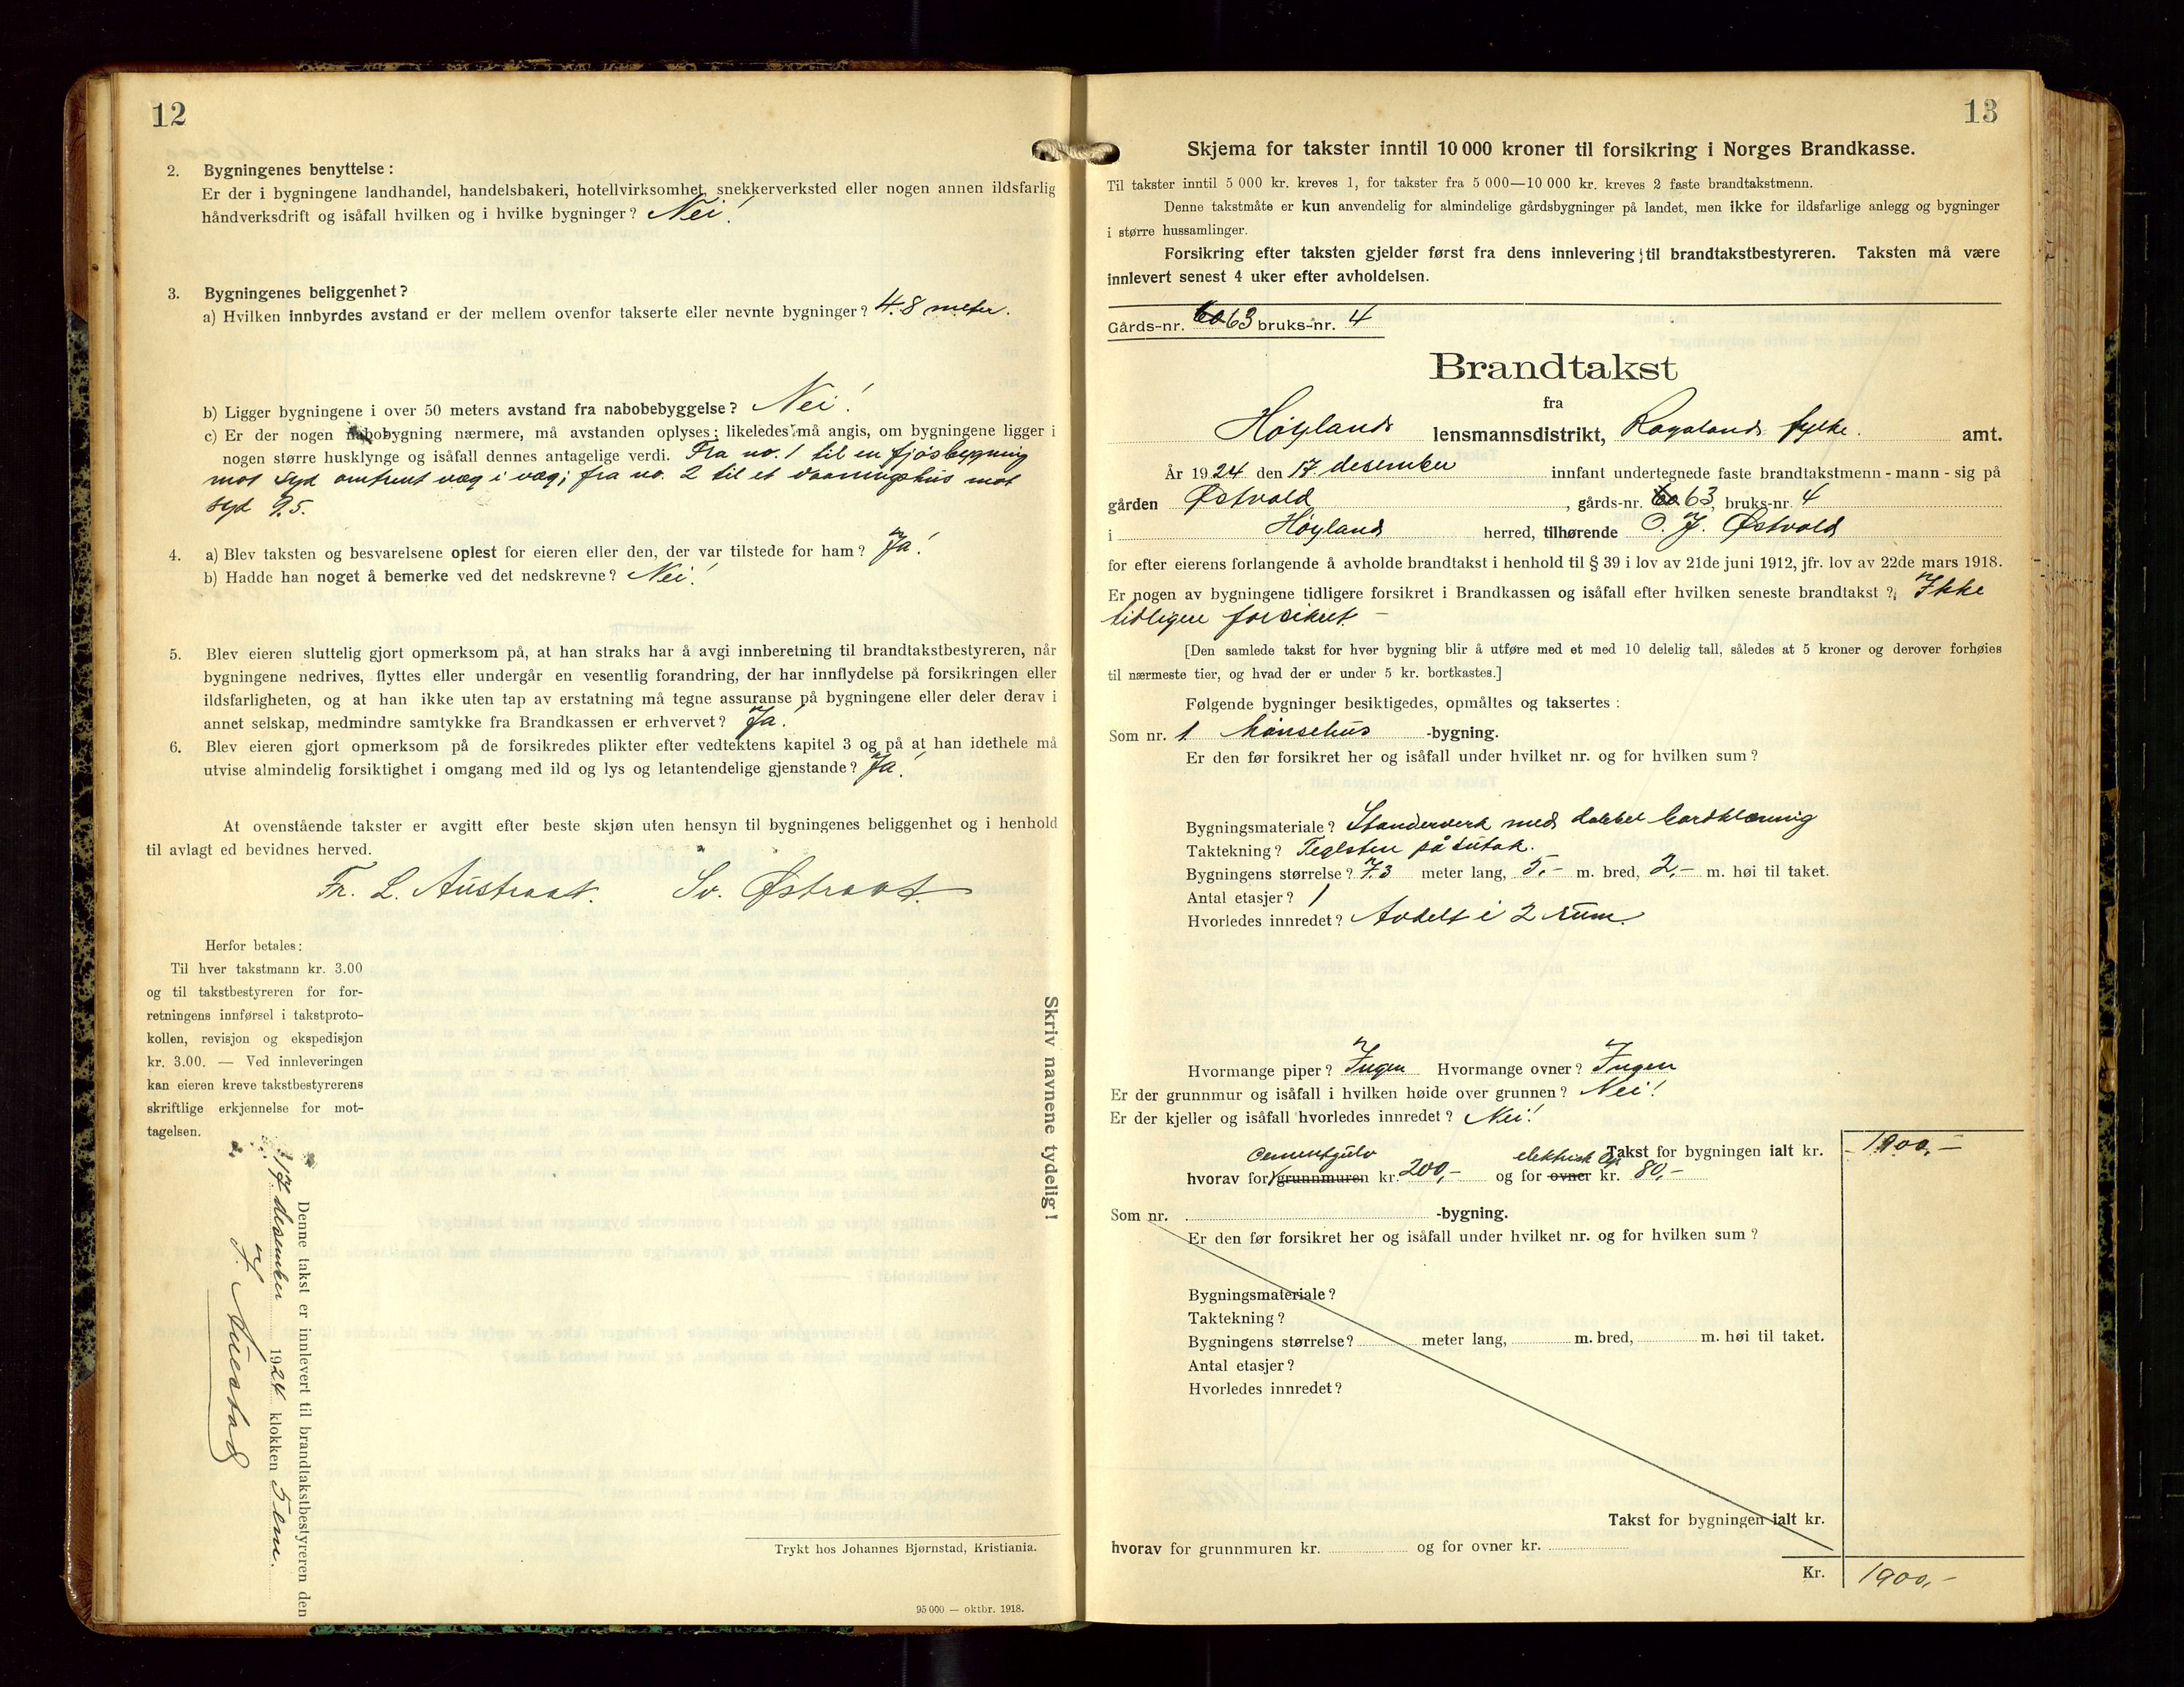 12
2. Bygningenes benyttelse:
Er der i bygningene landhandel, handelsbakeri, hotellvirksomhet, snekkerverksted eller nogen annen ildsfarlig
håndverksdrift og isåfall hvilken og i hvilke bygninger? Nei!
3. Bygningenes beliggenhet?
a) Hvilken innbyrdes avstand er der mellem ovenfor takserte eller nevnte bygninger? 4.8 meter.
b) Ligger bygningene i over 50 meters avstand fra nabobebyggelse? Nei!
c) Er der nogen nabobygning nærmere, må avstanden oplyses; likeledes må angis, om bygningene ligger i
nogen større husklynge og isåfall dennes antagelige verdi. Fra no. 1 til en fjøsbygning
mot syd omtrent væg i væg; fra no. 2 til et vaaningshus mot
syd 9.5.
4. a) Blev taksten og besvarelsene oplest for eieren eller den, der var tilstede for ham? Ja!
b) Hadde han noget å bemerke ved det nedskrevne? Nei!
5. Blev eieren sluttelig gjort opmerksom på, at han straks har å avgi innberetning til brandtakstbestyreren, når
bygningene nedrives, flyttes eller undergår en vesentlig forandring, der har innflydelse på forsikringen eller
ildsfarligheten, og at han ikke uten tap av erstatning må tegne assuranse på bygningene eller deler derav i
annet selskap, medmindre samtykke fra Brandkassen er erhvervet? Ja!
6. Blev eieren gjort opmerksom på de forsikredes plikter efter vedtektens kapitel 3 og på at han idethele må
utvise almindelig forsiktighet i omgang med ild og lys og letantendelige gjenstande? Ja!
At ovenstående takster er avgitt efter beste skjøn uten hensyn til bygningenes beliggenhet og i henhold
til avlagt ed bevidnes herved.
Fr. L. Austraat. Sv. Østraat.
Herfor betales:
Til hver takstmann kr. 3.00
og til takstbestyreren for for-
retningens innførsel i takstproto-
kollen, revisjon og ekspedisjon
kr. 3.00. — Ved innleveringen
kan eieren kreve takstbestyrerens
skriftlige erkjennelse for mot-
tagelsen.
Skriv navnene tydelig!
Denne takst er innlevert til brandtakstbestyreren den
17 desember 1924 klokken 5 em.
Trykt hos Johannes Bjørnstad, Kristiania.
95 000 — oktbr. 1918.
13
Skjema for takster inntil 10 000 kroner til forsikring i Norges Brandkasse.
Til takster inntil 5 000 kr. kreves 1, for takster fra 5 000—10 000 kr. kreves 2 faste brandtakstmenn.
Denne takstmåte er kun anvendelig for almindelige gårdsbygninger på landet, men ikke for ildsfarlige anlegg og bygninger
i større hussamlinger.
Forsikring efter taksten gjelder først fra dens innlevering til brandtakstbestyreren. Taksten må være
innlevert senest 4 uker efter avholdelsen.
Gårds-nr. 60 63 bruks-nr. 4
Brandtakst
fra
Høylands lensmannsdistrikt, Rogalands fylke. amt.
År 1924 den 17. desember innfant undertegnede faste brandtakstmenn - mann - sig på
gården Østvold, gårds-nr. 60 63, bruks-nr. 4
i Høyland herred, tilhørende O. J. Østvold
for efter eierens forlangende å avholde brandtakst i henhold til § 39 i lov av 21de juni 1912, jfr. lov av 22de mars 1918.
Er nogen av bygningene tidligere forsikret i Brandkassen og isåfall efter hvilken seneste brandtakst? Ikke
tidligere forsikret —
[Den samlede takst for hver bygning blir å utføre med et med 10 delelig tall, således at 5 kroner og derover forhøies
til nærmeste tier, og hvad der er under 5 kr. bortkastes.]
Følgende bygninger besiktigedes, opmåltes og taksertes:
Som nr. 1 hönsehus -bygning.
Er den før forsikret her og isåfall under hvilket nr. og for hvilken sum?
Bygningsmateriale? Standerverk med dobbel bordklædning
Taktekning? Teglsten på sutak.
Bygningens størrelse? 7.3 meter lang, 5,- m. bred, 2,- m. høi til taket.
Antal etasjer? 1
Hvorledes innredet? Avdelt i 2 rum.
Hvormange piper? Ingen Hvormange ovner? Ingen
Er der grunnmur og isåfall i hvilken høide over grunnen? Nei!
Er der kjeller og isåfall hvorledes innredet? Nei!
Takst for bygningen ialt kr. 1900,-
cementgulv elektrisk
hvorav for grunnmuren kr. 200,- og for ovner kr. 80,-
Som nr. -bygning.
Er den før forsikret her og isåfall under hvilket nr. og for hvilken sum?
Bygningsmateriale?
Taktekning?
Bygningens størrelse? meter lang, m. bred, m. høi til taket.
Antal etasjer?
Hvorledes innredet?
Takst for bygningen ialt kr.
hvorav for grunnmuren kr. og for ovner kr.
Kr. 1900,-